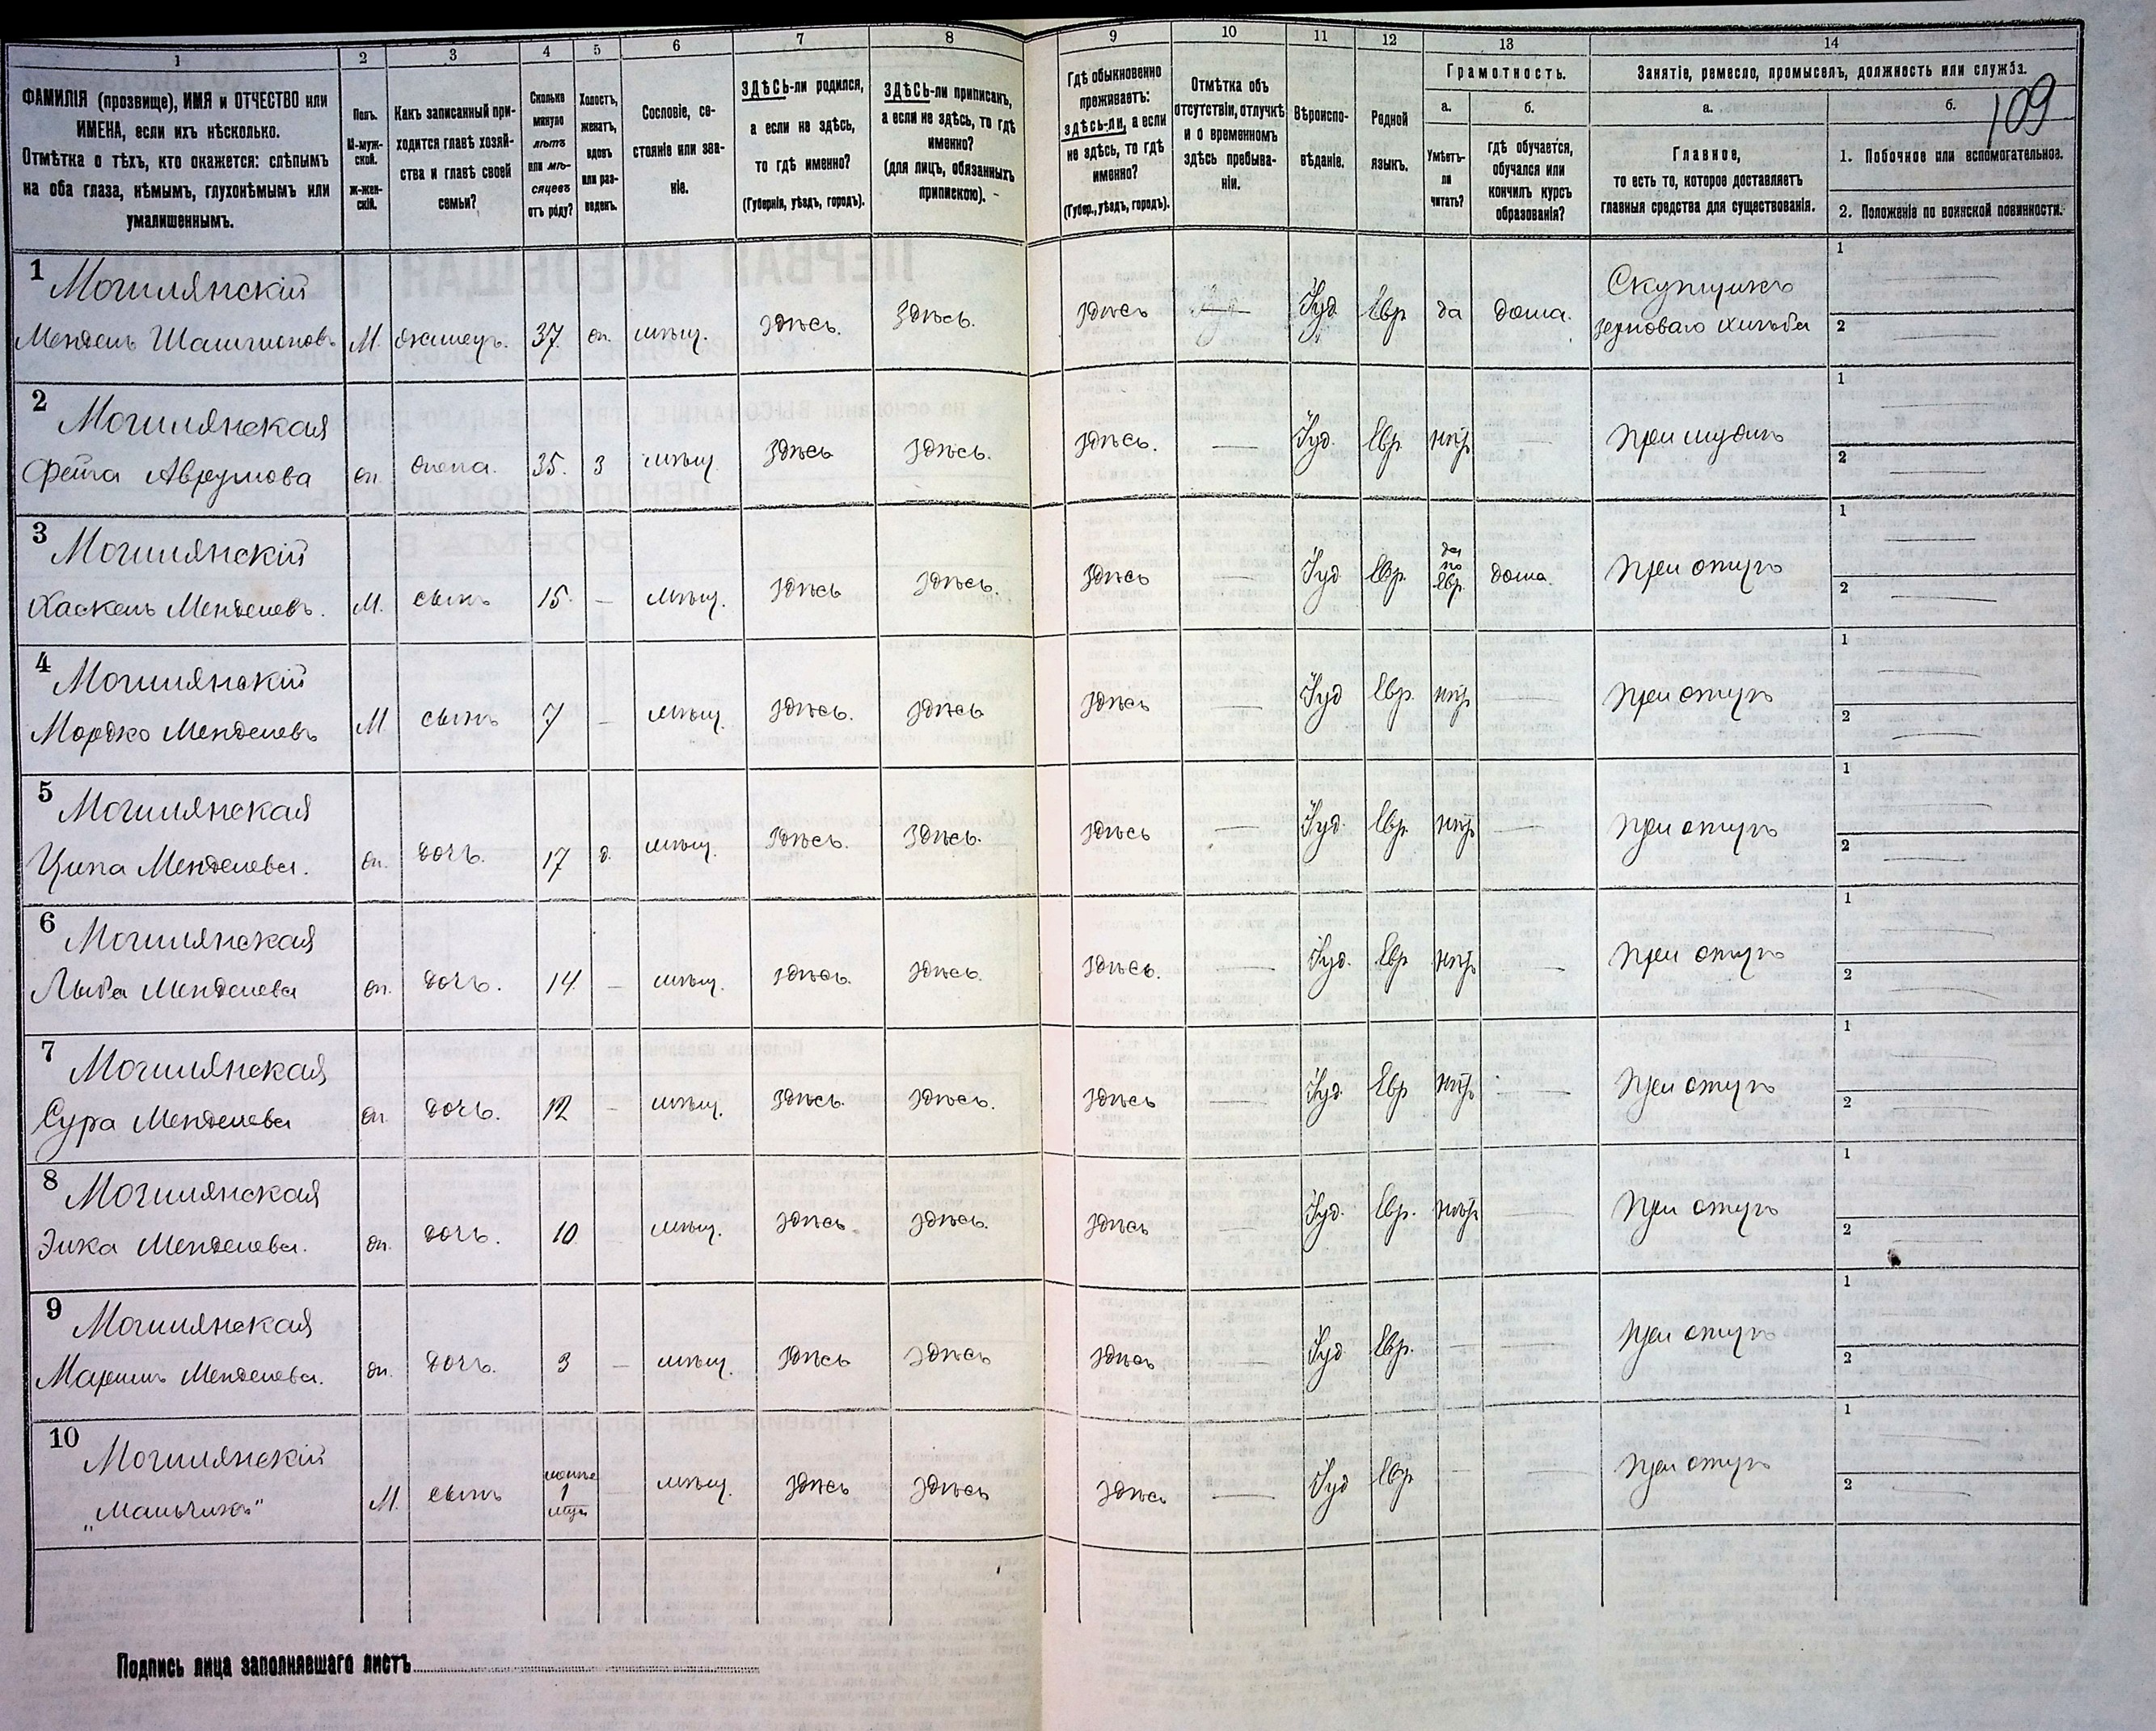 1
2
3
4
5
6
7
8
9
10
11
12
13
14
109
ФАМИЛІЯ (прозвище), ИМЯ и ОТЧЕСТВО или
ИМЕНА, если ихъ нѣсколько.
Отмѣтка о тѣхъ, кто окажется: слѣпымъ
на оба глаза, нѣмымъ, глухонѣмымъ или
умалишеннымъ.
Полъ.
М-муж-
ской.
Ж-жен-
скій.
Какъ записанный при-
ходится главѣ хозяй-
ства и главѣ своей
семьи?
Сколько
минуло
лѣтъ
или мѣ-
сяцевъ
отъ роду?
Холостъ,
женатъ,
вдовъ
или раз-
веденъ.
Сословіе, со-
стояніе или зва-
ніе.
ЗДѢСЬ-ли родился,
а если не здѣсь,
то гдѣ именно?
(Губернія, уѣздъ, городъ).
ЗДѢСЬ-ли приписанъ,
а если не здѣсь, то гдѣ
именно?
(для лицъ, обязанныхъ
припискою).
Гдѣ обыкновенно
проживаетъ:
здѣсь-ли, а если
не здѣсь, то гдѣ
именно?
(Губер., уѣздъ, городъ).
Отмѣтка объ
отсутствіи, отлучкѣ
и о временномъ
здѣсь пребыва-
ніи.
Вѣроиспо-
вѣданіе.
Родной
языкъ.
Грамотность.
а.
Умѣетъ-
ли
читать?
б.
гдѣ обучается,
обучался или
кончилъ курсъ
образованія?
Занятіе, ремесло, промыселъ, должность или служба.
а.
Главное,
то есть то, которое доставляетъ
главныя средства для существованія.
б.
1. Побочное или вспомогательное.
2. Положеніе по воинской повинности.
1 Могилянскій
Мендель М. 37 мѣщ. здѣсь. здѣсь. здѣсь Іуд Евр да дома. Скупщикъ
зерноваго хлѣба 1 2
2 Могилянская
Аврумова жена. 35. з мѣщ здѣсь здѣсь. здѣсь. — Іуд. Евр нѣтъ — при мужѣ 1 2
3 Могилянскій
Хаскель Менделевъ. М. сынъ 15. — мѣщ. здѣсь здѣсь. здѣсь — Іуд Евр. да по Евр. дома. при отцѣ 1 2
4 Могилянскій
Мордко Менделевъ М сынъ 7 — мѣщ. здѣсь. здѣсь здѣсь — Іуд Евр. нѣтъ — при отцѣ 1 2
5 Могилянская
Ципа Менделева. ж. дочь. 17 д. мѣщ. здѣсь. здѣсь. здѣсь — Іуд. Евр. нѣтъ — при отцѣ 1 2
6 Могилянская
Менделева ж. дочь. 14 — мѣщ. здѣсь. здѣсь. здѣсь. — Іуд. Евр нѣтъ — при отцѣ 1 2
7 Могилянская
Сура Менделева ж. дочь. 12 — мѣщ. здѣсь. здѣсь. здѣсь — Іуд. Евр нѣтъ — при отцѣ 1 2
8 Могилянская
Элка Менделева. ж. дочь. 10 — мѣщ. здѣсь здѣсь. здѣсь — Іуд. Евр. нѣтъ — при отцѣ 1 2
9 Могилянская
Менделева. ж. дочь. 3 — мѣщ. здѣсь здѣсь здѣсь — Іуд Евр. — — при отцѣ 1 2
10 Могилянскій
„Мальчикъ“ М. сынъ 1 — мѣщ. здѣсь здѣсь здѣсь — Іуд Евр. — — при отцѣ 1 2
Подпись лица заполнявшаго листъ